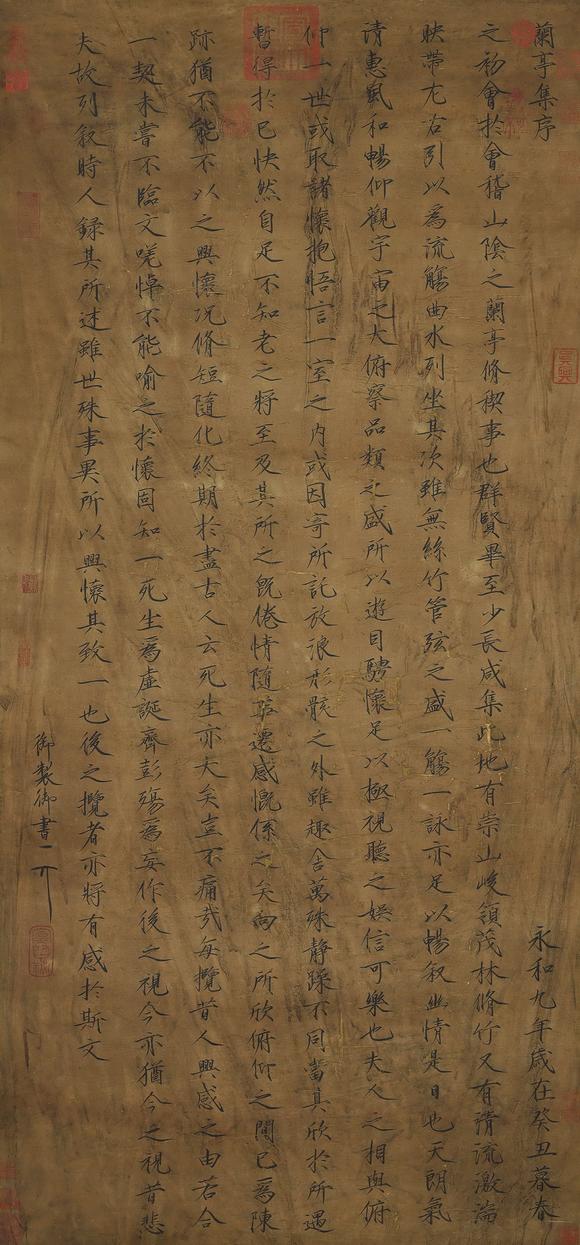 蘭亭集序
永和九年歲在癸丑暮春
之初會於會稽山陰之蘭亭脩禊事也群賢畢至少長咸集此地有崇山峻領茂林脩竹又有清流激湍
映帶左右引以為流觴曲水列坐其次雖無絲竹管弦之盛一觴一詠亦足以暢叙幽情是日也天朗氣
清惠風和暢仰觀宇宙之大俯察品類之盛所以遊目騁懷足以極視聽之娛信可樂也夫人之相與俯
仰一世或取諸懷抱悟言一室之內或因寄所託放浪形骸之外雖趣舍萬殊靜躁不同當其欣於所遇
暫得於己快然自足不知老之將至及其所之既倦情隨事遷感慨係之矣向之所欣俯仰之間已為陳
跡猶不能不以之興懷況脩短隨化終期於盡古人云死生亦大矣豈不痛哉每攬昔人興感之由若合
一契未嘗不臨文嗟悼不能喻之於懷固知一死生為虛誕齊彭殤為妄作後之視今亦猶今之視昔悲
夫故列叙時人錄其所述雖世殊事異所以興懷其致一也後之攬者亦將有感於斯文
御製御書